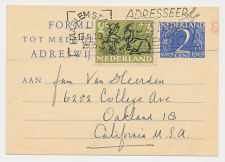 FORMU
TOT MEDE
ADRESWIJ
EM-ST
ADRESSEER
NEDERLAND
NEDERLAND
2
CENT
AAN
Jan Van Heerden
6282 College Ave
Oakland 18
California U.S.A.